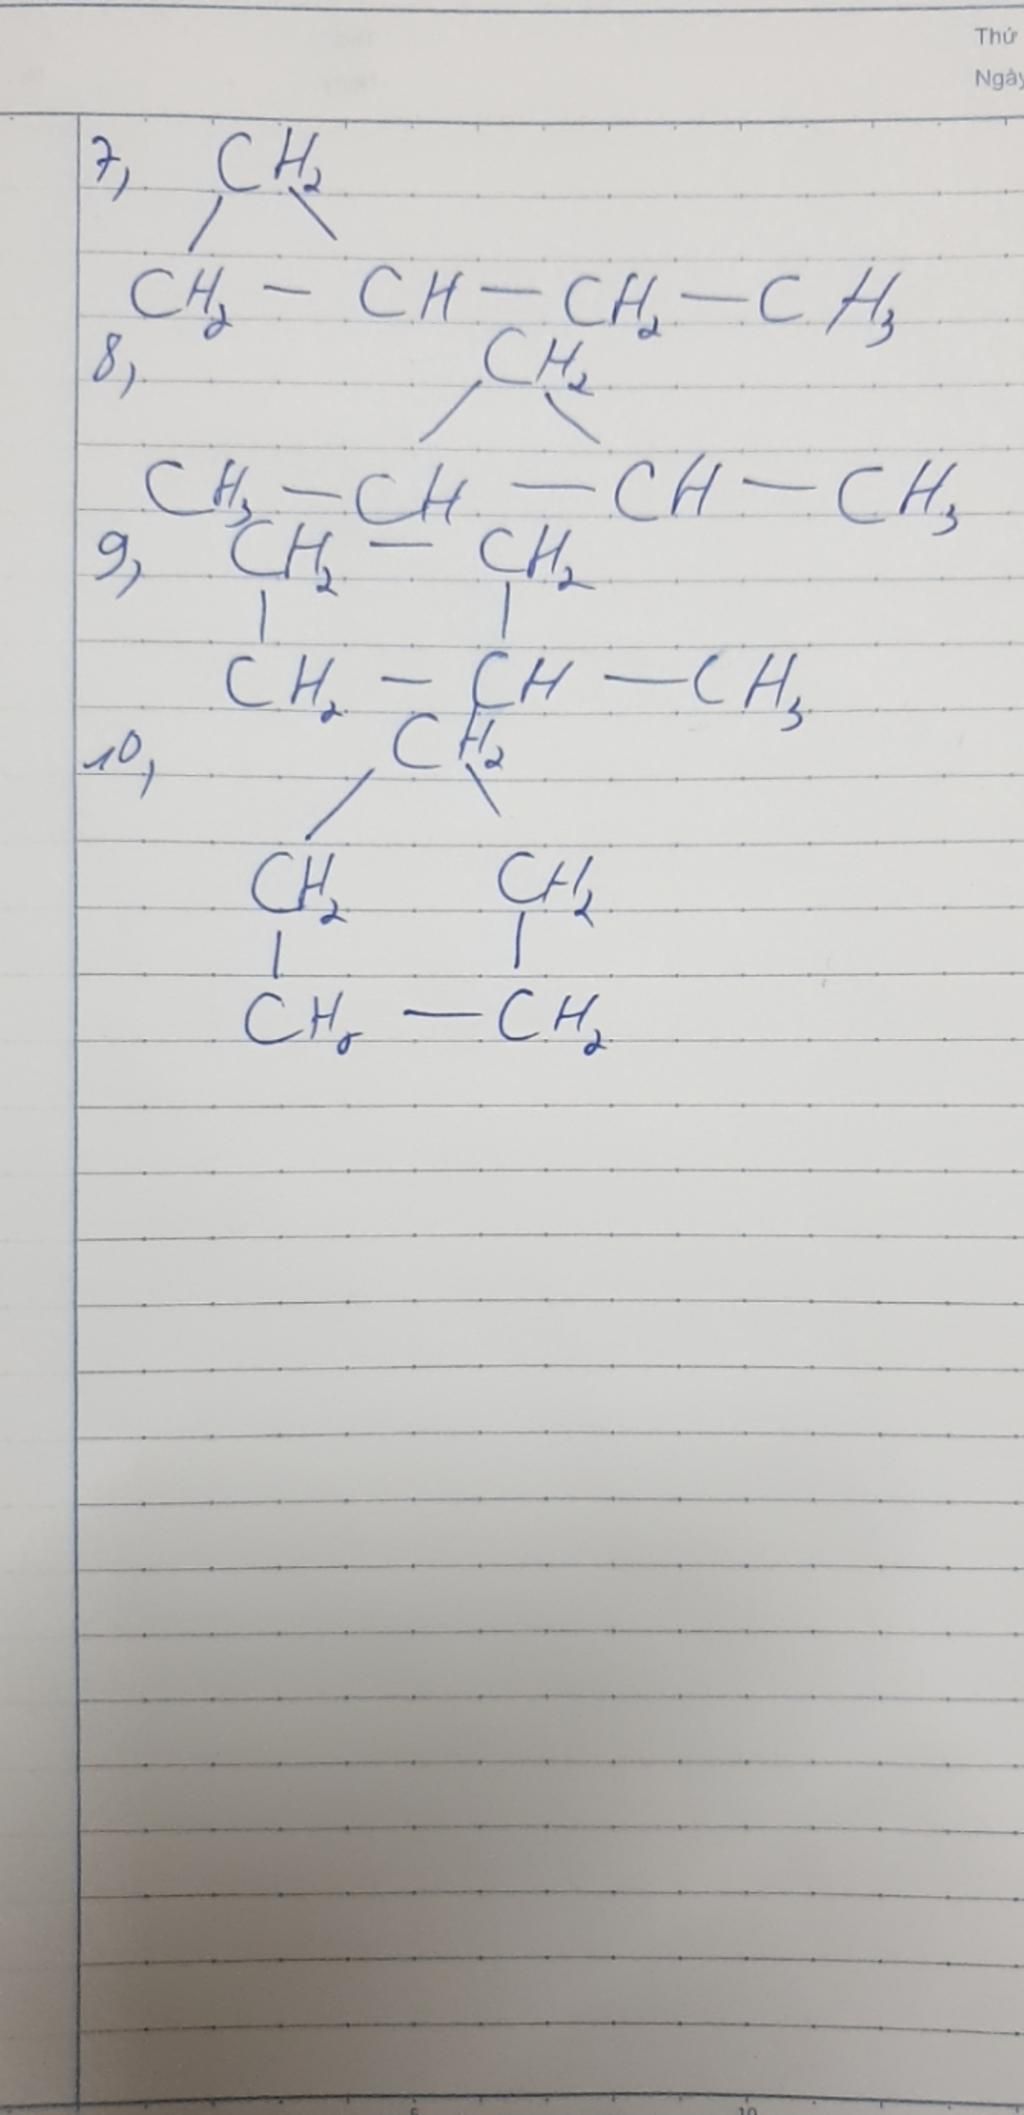 Thứ
Ngày
7, CH₂
/ \
CH₂ — CH — CH₂ — CH₃
8, CH₂
/ \
CH₃ — CH — CH — CH₃
9, CH₂ — CH₂
| |
CH₂ — CH — CH₃
10, CH₂
/ \
CH₂ CH₂
| |
CH₂ — CH₂
5 10